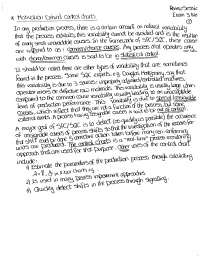 Reven/Screnic
Exam 3 Rev
①
* Motivation Behind Control charts
In any production process, there is a certain amount of natural variability
that the process exhibits, this variability cannot be avoided and is the addition
of many small unavoidable causes. In the framework of SPC/SQC, these causes
are referred to as common/chance causes. Any process that operates only
with chance/common causes is said to be in statistical control.
It should be noted there are other types of variability that are sometimes
found in the process. Some SQC experts, e.g. Douglas Montgomery, say that
this variability is due to 3 sources: improperly adjusted/controlled machines,
operator errors, or defective raw materials. This variability is usually large when
compared to the common cause variability, usually leading to an unacceptable
level of production performance. This variability is due to special/assignable
causes, which reflect that they are not a function of the process, but some
external events. A process having assignable causes is said to be out of control.
A major goal of SPC/SQC is to detect (as quickly as possible) the occurrence
of assignable causes of process shifts so that the investigation of the reasons for
that shift may be done & corrective action taken before many non-conforming
units are produced. The control charts is a "real-time" process monitoring
approach that are used for that purpose. Other uses of the control chart
include:
1) Estimate the parameters of the production process through calculating
2) Is used in many process improvement approaches
3) Quickly detect shifts in the process through signalling.